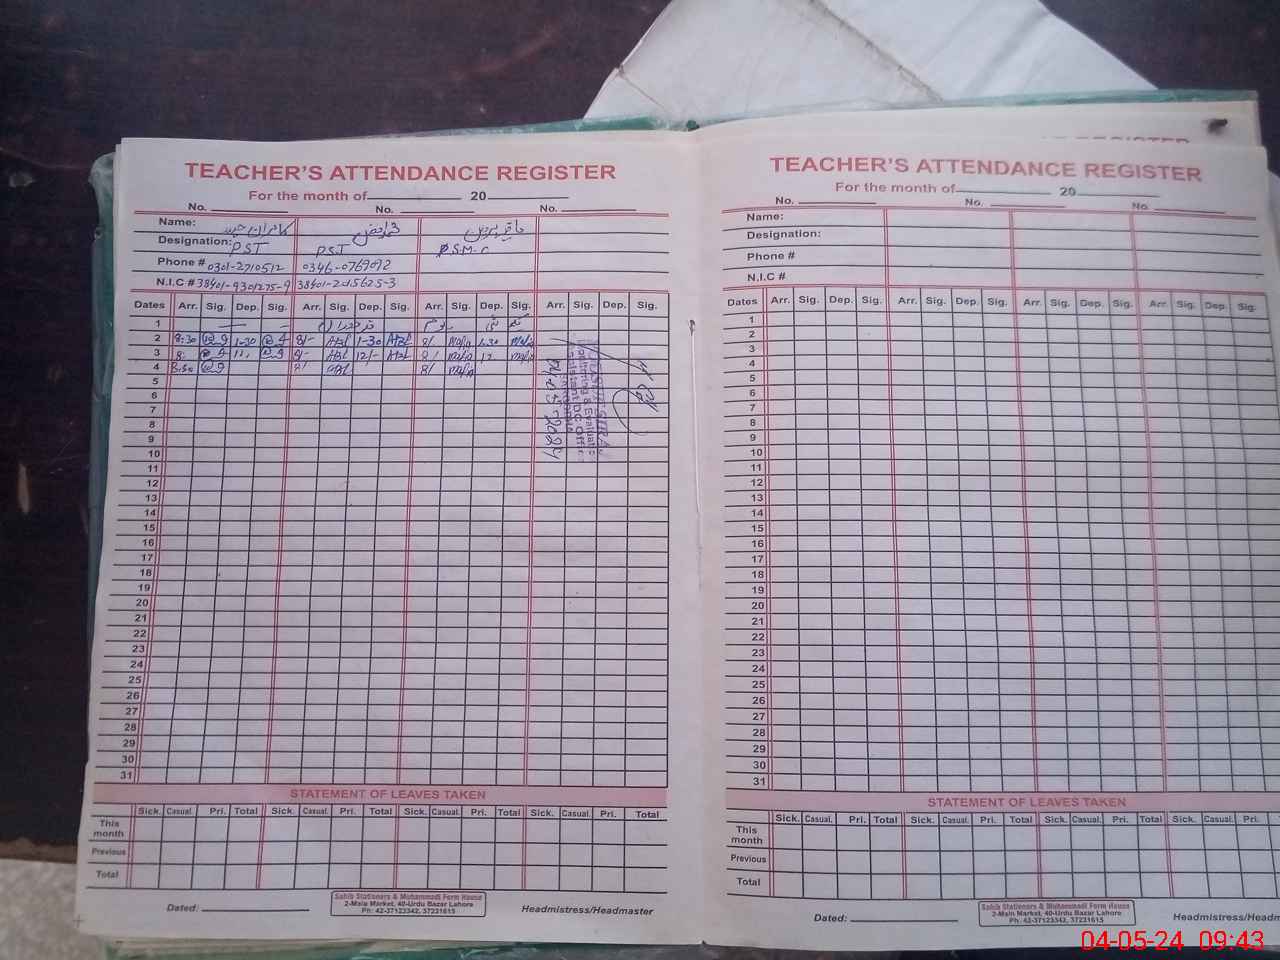 TEACHER'S ATTENDANCE REGISTER
For the month of 20
No. No. No.
Name:
Designation: PST PST P.S.M.C
Phone # 0301-2710512 0346-0769092
N.I.C # 38401-9301275-9 38401-2015625-3
Dates Arr. Sig. Dep. Sig. Arr. Sig. Dep. Sig. Arr. Sig. Dep. Sig. Arr. Sig. Dep. Sig.
1
2 8:30 1-30 8/- 1-30 8/ 1.30
3 8: 8/- 12/- 8/ 12
4 8:30 8/ 8/
5
6
7
8
9
10
11
12
13
14
15
16
17
18
19
20
21
22
23
24
25
26
27
28
29
30
31
04-05-2024
STATEMENT OF LEAVES TAKEN
Sick. Casual. Pri. Total Sick. Casual. Pri. Total Sick. Casual. Pri. Total Sick. Casual. Pri. Total
This month
Previous
Total
Dated:
Sahib Stationers & Muhammadi Form House
2-Main Market, 40-Urdu Bazar Lahore
Ph: 42-37123342, 37231615
Headmistress/Headmaster
TEACHER'S ATTENDANCE REGISTER
For the month of 20
No. No. No.
Name:
Designation:
Phone #
N.I.C #
Dates Arr. Sig. Dep. Sig. Arr. Sig. Dep. Sig. Arr. Sig. Dep. Sig. Arr. Sig. Dep. Sig.
1
2
3
4
5
6
7
8
9
10
11
12
13
14
15
16
17
18
19
20
21
22
23
24
25
26
27
28
29
30
31
STATEMENT OF LEAVES TAKEN
Sick. Casual. Pri. Total Sick. Casual. Pri. Total Sick. Casual. Pri. Total Sick. Casual. Pri.
This month
Previous
Total
Dated:
Sahib Stationers & Muhammadi Form House
2-Main Market, 40-Urdu Bazar Lahore
Ph: 42-37123342, 37231615
Headmistress/Headm
04-05-24 09:43